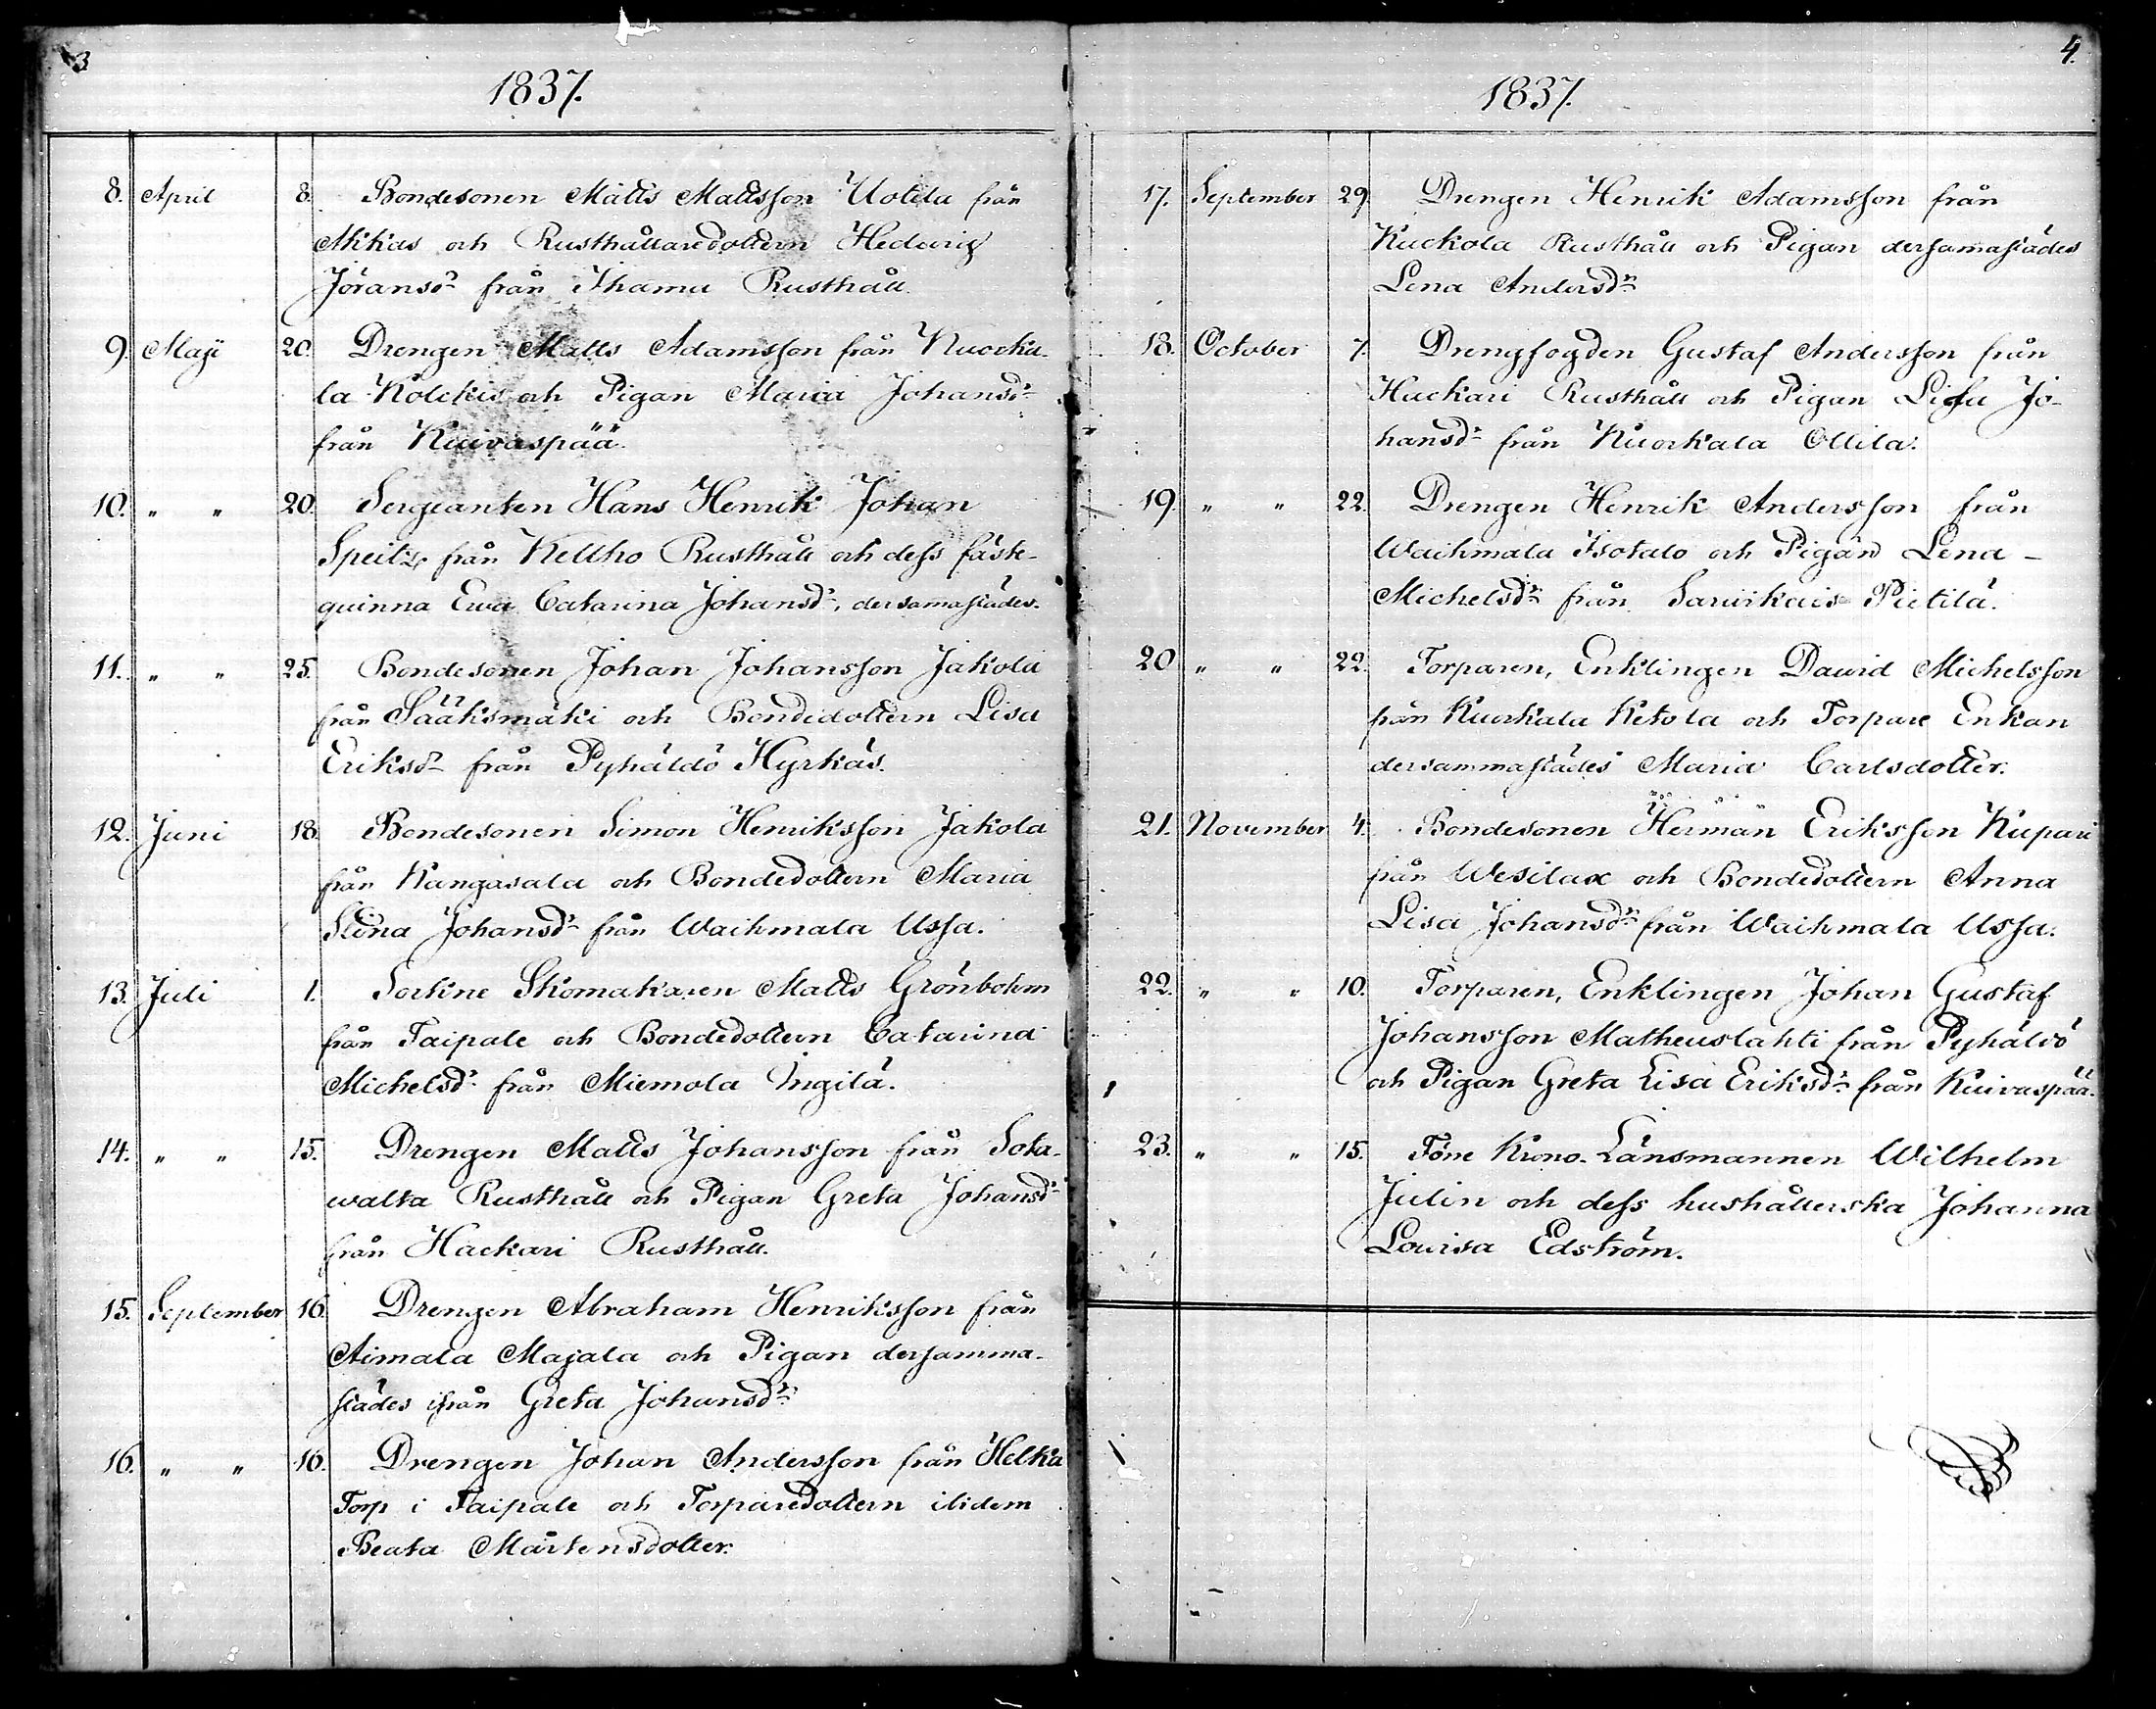 3
1837.
8. April 8. Bondesonen Matts Mattsson Uotila från
Akkas och Rusthållaredottern Hedvig
Jöransdr från Ihamu Rusthåll.
9. Maji 20. Drengen Matts Adamsson från Kuorka-
la Kölckis och Pigan Maria Johansdr
från Kuivaspää.
10. " " 20. Sergeanten Hans Henrik Johan
Speitz, från Keltho Rusthåll och dess fäste-
quinna Ewa Catarina Johansdr, dersamastädes.
11. " " 25. Bondesonen Johan Johansson Jakola
från Sääksmäki och Bondedottern Lisa
Eriksdr från Pyhäldö Hyrkäs.
12. Juni 18. Bondesonen Simon Henriksson Jakola
från Kangasala och Bondedottern Maria
Stina Johansdr från Waihmala Ussa.
13. Juli 1. Sockne Skomakaren Matts Grönbohm
från Taipale och Bondedottern Catarina
Michelsdr från Miemola Ingilä.
14. " " 15. Drengen Matts Johansson från Sota-
walta Rusthåll och Pigan Greta Johansdr
från Hackari Rusthåll.
15. September 16. Drengen Abraham Henriksson från
Aimala Majala och Pigan dersamma-
städes ifrån Greta Johansdr
16. " " 16. Drengen Johan Andersson från Helka
Torp i Taipale och Torparedottern ibidem
Beata Mårtensdotter.
4.
1837.
17. September 29. Drengen Henrik Adamsson från
Kuckola Rusthåll och Pigan dersamastädes
Lena Andersdr
18. October 7. Drengfogden Gustaf Andersson från
Hackari Rusthåll och Pigan Lisa Jo-
hansdr från Kuorkala Ollila.
19. " " 22. Drengen Henrik Andersson från
Waihmala Isotalo och Pigan Lena
Michelsdr från Pietilä.
20 " " 22. Torparen, Enklingen David Michelsson
från Kuorkala Ketola och Torpare Enkan
dersammastädes Maria Carlsdotter.
21. November 4. Bondesonen Herman Eriksson Kupari
från Wesilax och Bondedottern Anna
Lisa Johansdr från Waihmala Ussa.
22. " " 10. Torparen, Enklingen Johan Gustaf
Johansson Matheuslahti från Pyhäldö
och Pigan Greta Lisa Eriksdr från Kuivaspää.
23. " " 15. Före Krono-Länsmannen Wilhelm
Julin och dess hushållerska Johanna
Lovisa Edström.